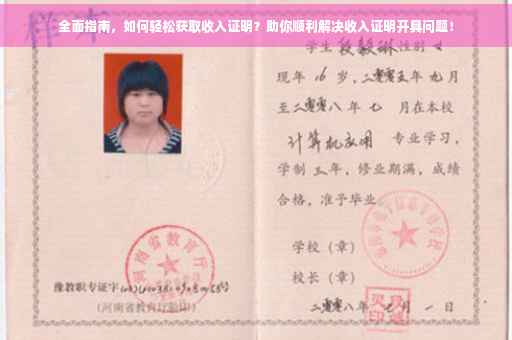 全面指南，如何轻松获取收入证明？助你顺利解决收入证明开具问题！
样本
学生 段毅琳 性别 女
现年 16 岁，二零零五年 九月
至二零零八年 七 月在本校
计算机应用 专业学习，
学制 三年，修业期满，成绩
合格，准予毕业。
学校（章）
校长（章）
二零零八年 七 月 一 日
河南省教育厅
豫教职专证字
（河南省教育厅验印）